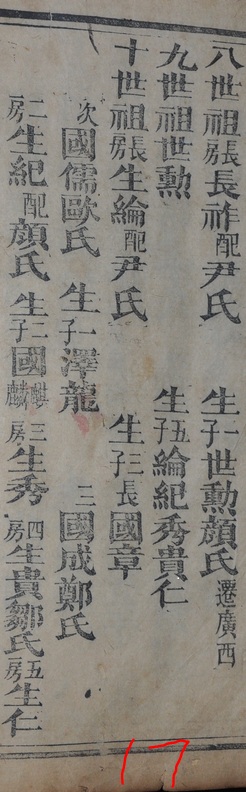 八世祖長房長祚配尹氏 生子一世勲顏氏遷廣西
九世祖世勲 生子五綸紀秀貴仁
十世祖長房生綸配尹氏 生子三長國章
次國儒歐氏 生子一澤龍 三國成鄭氏
二房生紀配顏氏 生子二國麒麟 三房生秀 四房生貴鄒氏 五房生仁
17